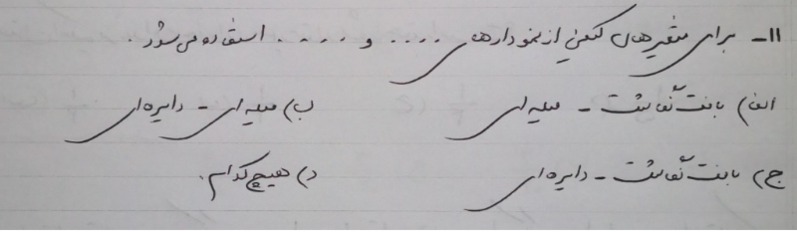 ۱۱- برای متغیرهای کیفی از نمودارهای .... و .... استفاده می‌شود.
الف) بافت‌نگاشت - میله‌ای ب) میله‌ای - دایره‌ای
ج) بافت‌نگاشت - دایره‌ای د) هیچ‌کدام.